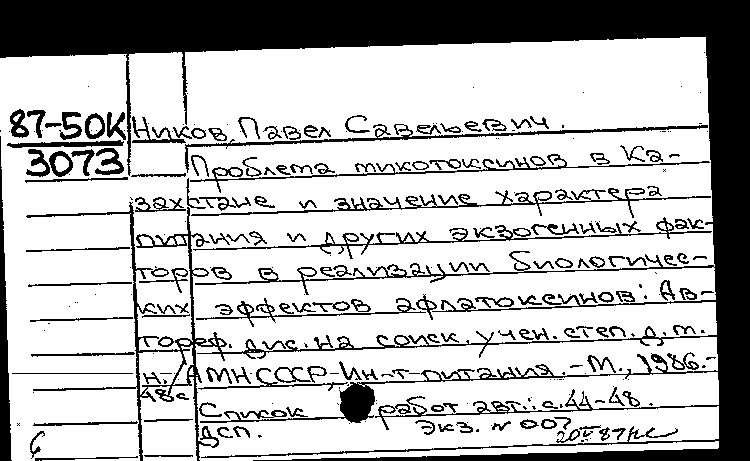 87-50К Ников, Павел Савельевич.
3073 Проблема микотоксинов в Ка-
захстане и значение характера
питания и других экзогенных фак-
торов в реализации биологичес-
ких эффектов афлатоксинов: Ав-
тореф. дис. на соиск. учен. степ. д. м.
н./АМН СССР, Ин-т питания.-М., 1986.-
48с
Список работ авт.: с. 44-48.
ДСП. Экз. N 007
20 V 87